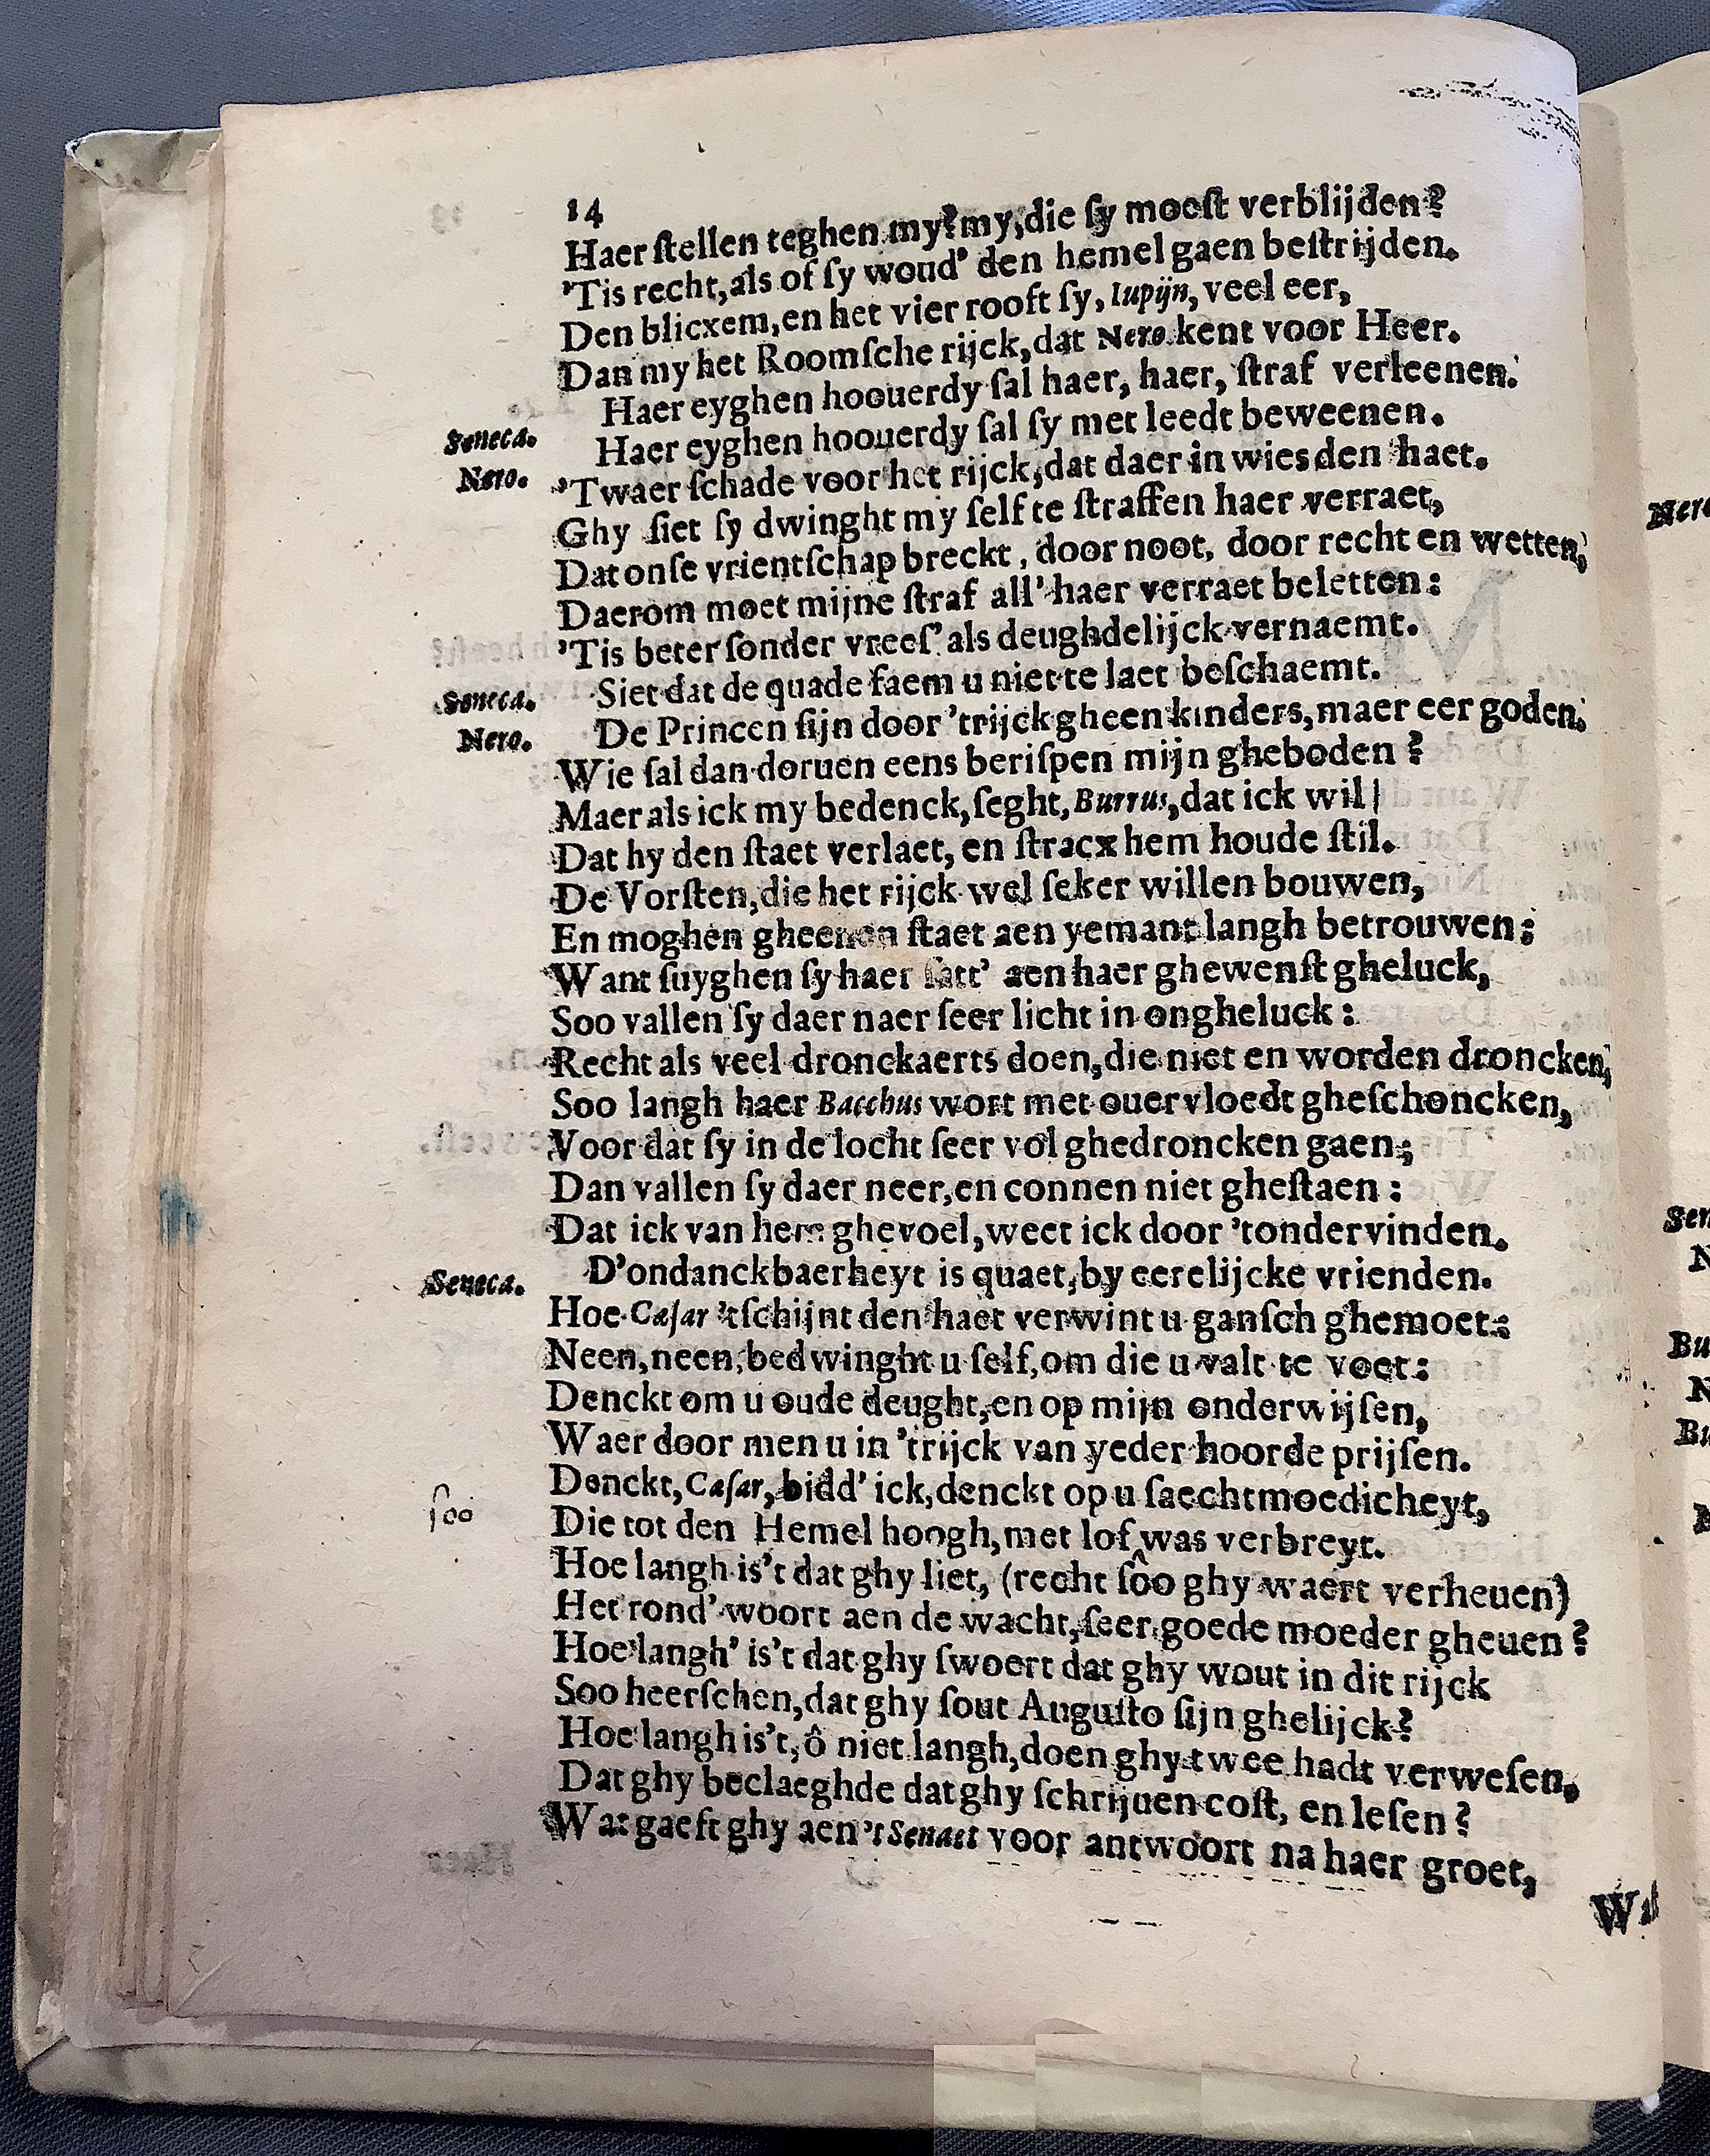 14
Haer ſtellen teghen my? my, die ſy moeſt verblijden?
'Tis recht, als of ſy woud' den hemel gaen beſtrijden.
Den blicxem, en het vier rooft ſy, Iupijn, veel eer,
Dan my het Roomſche rijck, dat Nero kent voor Heer.
Haer eyghen hoouerdy ſal haer, haer, ſtraf verleenen.
Seneca. Haer eyghen hoouerdy ſal ſy met leedt beweenen.
Nero. 'Twaer ſchade voor het rijck, dat daer in wies den haet.
Ghy ſiet ſy dwinght my ſelf te ſtraffen haer verraet,
Dat onſe vrientſchap breckt, door noot, door recht en wetten,
Daerom moet mijne ſtraf all' haer verraet beletten:
'Tis beter ſonder vreeſ' als deughdelijck vernaemt.
Seneca. Siet dat de quade faem u niet te laet beſchaemt.
Nero. De Princen ſijn door 'trijck gheen kinders, maer eer goden.
Wie ſal dan doruen eens beriſpen mijn gheboden?
Maer als ick my bedenck, ſeght, Burrus, dat ick wil|
Dat hy den ſtaet verlaet, en ſtracx hem houde ſtil.
De Vorſten, die het rijck wel ſeker willen bouwen,
En moghen gheenen ſtaet aen yemant langh betrouwen;
Want ſuyghen ſy haer ſatt' aen haer ghewenſt gheluck,
Soo vallen ſy daer naer ſeer licht in ongheluck:
Recht als veel dronckaerts doen, die niet en worden droncken,
Soo langh haer Bacchus wort met ouervloedt gheſchoncken,
Voor dat ſy in de locht ſeer vol ghedroncken gaen;
Dan vallen ſy daer neer, en connen niet gheſtaen:
Dat ick van hem ghevoel, weet ick door 'tondervinden.
Seneca. D'ondanckbaerheyt is quaet, by eerelijcke vrienden.
Hoe Cæſar 'tſchijnt den haet verwint u ganſch ghemoet:
Neen, neen, bedwinght u ſelf, om die u valt te voet:
Denckt om u oude deught, en op mijn onderwijſen,
Waer door men u in 'trijck van yeder hoorde prijſen.
Denckt, Cæſar, bidd' ick, denckt op u ſaechtmoedicheyt,
ſoo
Die tot den Hemel hoogh, met lof was verbreyt.
Hoe langh is't dat ghy liet, (recht ſoo ghy waert verheuen)
Het rond' woort aen de wacht, ſeer goede moeder gheuen?
Hoe langh' is't dat ghy ſwoert dat ghy wout in dit rijck
Soo heerſchen, dat ghy ſout Auguſto ſijn ghelijck?
Hoe langh is't, ô niet langh, doen ghy twee hadt verweſen,
Dat ghy beclaeghde dat ghy ſchrijuen coſt, en leſen?
Wat gaeft ghy aen 't Senaet voor antwoort na haer groet,